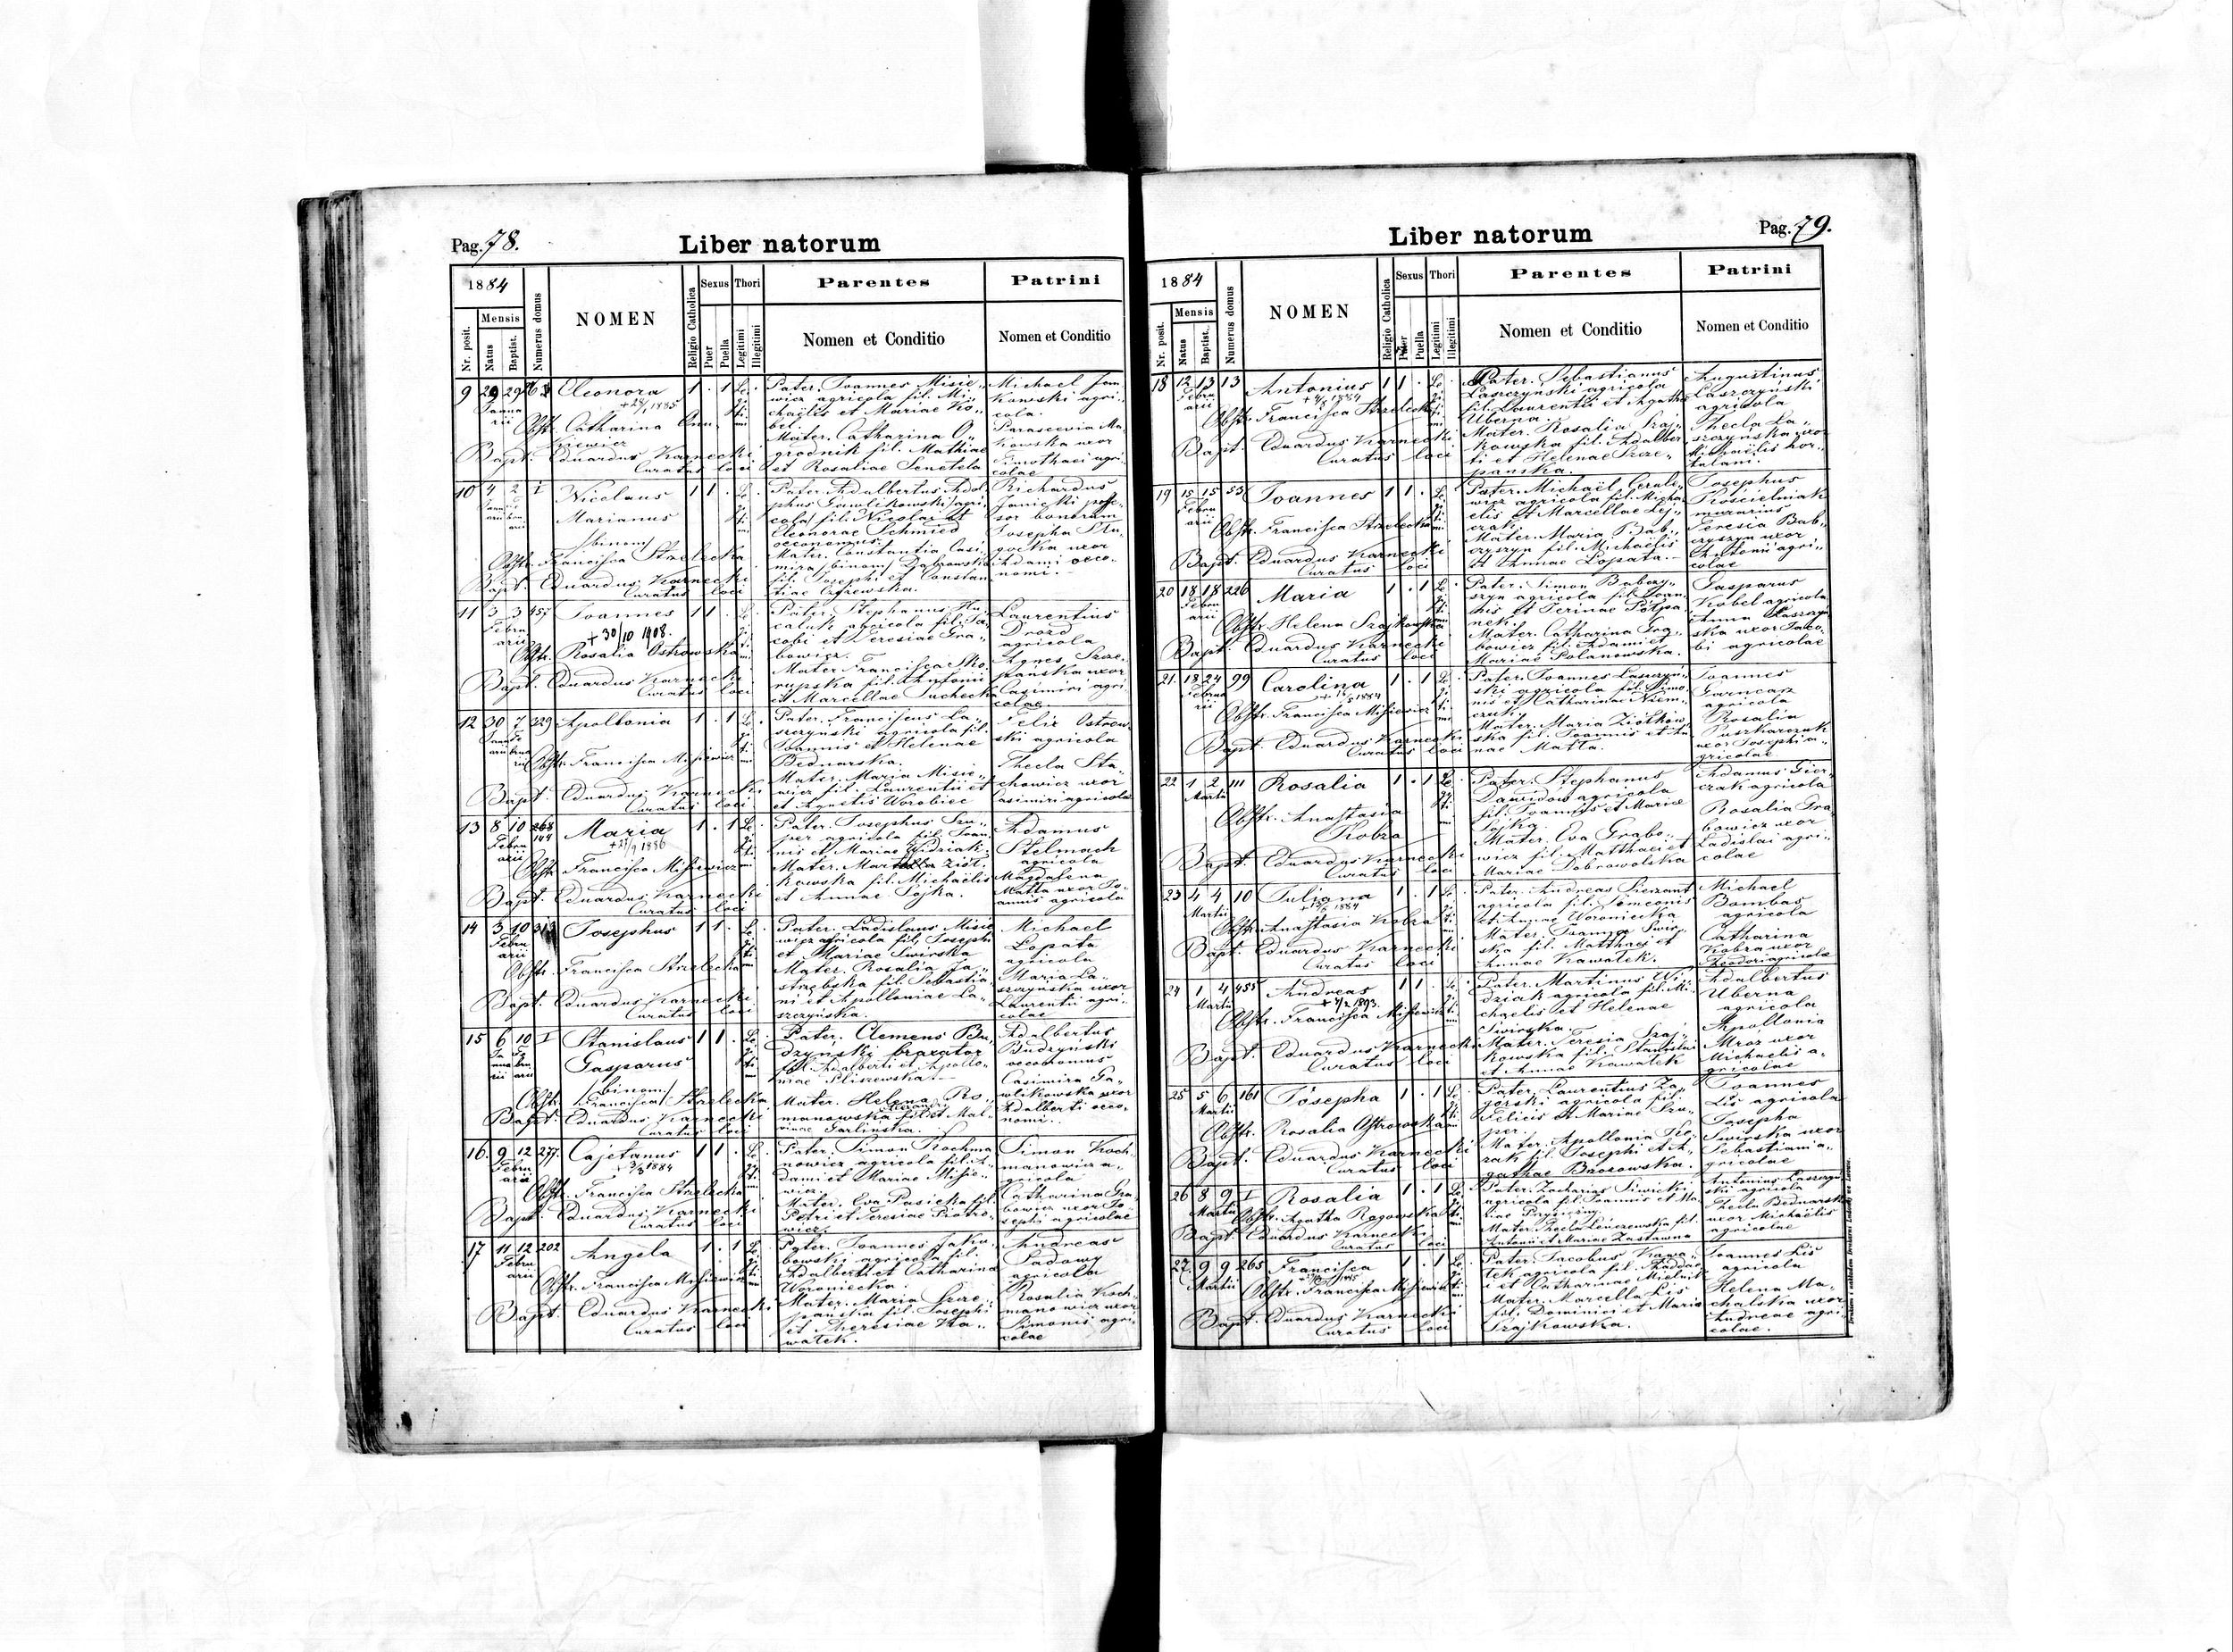 Pag. 78.
Liber natorum
1884
Nr. posit.
Mensis
Natus
Baptist.
Numerus domus
NOMEN
Religio Catholica
Sexus
Puer
Puella
Thori
Legitimi
Illegitimi
Parentes
Nomen et Conditio
Patrini
Nomen et Conditio
9 29 29 Eleonora 1 . 1
Januarii
Obstr. Catharina
Bapt. Eduardus Karnecki
Curatus loci
Pater. Joannes Misie„
wicz agricola fil. Mi„
chaëlis et Mariae Ko„
bel.
Mater. Catharina O„
grodnik fil. Mathiae
et Rosaliae Senetela
Michael Jan
kowski agri„
cola.
Parascevia Ma
kowska uxor
Timothaei agri„
colae
10 4 2 I Nicolaus 1 1 .
Marianus
/binom/
Obstr. Francisca Strzelecka
Bapt. Eduardus Karnecki
Curatus loci
Pater. Adalbertus Adol
phus Gawlikowski
fil. Nicolai et
Eleonorae Schmied
oeconomus.
Mater. Constantia Casi„
mira /binom/ Dąbrowska
fil. Josephi et Constan
tiae
Richardus
Janicki posse
sor bonorum
Josepha
uxor
Adami oeco„
nomi.
11 3 3 457 Joannes 1 1 .
Februarii
+ 30/10 1908.
Obstr. Rosalia Ostrowska
Bapt. Eduardus Karnecki
Curatus loci
Pater. Stephanus Hu„
caluk agricola fil. Ja„
cobi et Teresiae Gra„
bowicz.
Mater Francisca Sko„
rupska fil. Antonii
et Marcellae Suchecka
Laurentius
Drozd
agricola
Agnes Szcze„
pańska uxor
Casimiri agri
colae
12 30 7 329 Apollonia 1 . 1
Obstr. Francisca Misiewicz
Bapt. Eduardus Karnecki
Curatus loci
Pater. Franciscus La„
szczyński agricola fil.
Joannis et Helenae
Bednarska.
Mater. Maria Misie„
wicz fil. Laurentii et
et Agnetis Worobiec
Felix Ostrow„
ski agricola
Thecla Sta„
chowicz uxor
Casimiri agricolae
13 8 10 268 Maria 1 . 1
144
Februarii
Obstr. Francisca Misiewicz
Bapt. Eduardus Karnecki
Curatus loci
Pater. Josephus Szu„
per agricola fil. Joan
nis et Mariae Widziak.
Mater. Martha Ziół„
kowska fil. Michaëlis
et Annae Sojka.
Adamus
Stelmach
agricola
Magdalena
Matta uxor Jo„
annis agricola
14 3 10 313 Josephus 1 1 .
Februarii
Obstr. Francisca Strzelecka
Bapt. Eduardus Karnecki
Curatus loci
Pater. Ladislaus Misie
wicz agricola fil. Josephi
et Mariae Swirska
Mater. Rosalia Ja„
strębska fil. Sebastia„
ni et Apolloniae La„
szczyńska.
Michael
Łopata
agricola
Maria La„
szczyńska uxor
Laurentii agri„
colae
15 6 10 I Stanislaus 1 1 .
Gasparus
/binom/
Obstr. Francisca Strzelecka
Bapt. Eduardus Karnecki
Curatus loci
Pater. Clemens Bu„
dzyński braxator
fil. Adalberti et Apollo„
niae Pliszewska.
Mater. Helena Ro„
manowska fil. et Mal„
vinae Garlińska.
Adalbertus
Budzyński
oeconomus
Casimira Ga„
wlikowska uxor
Adalberti oeco„
nomi.
16. 9 12 277. Cajetanus 1 1 .
Februarii
+ 3/3 1884
Obstr. Francisca Strzelecka
Bapt. Eduardus Karnecki
Curatus loci
Pater. Simon Kochma
nowicz agricola fil. A„
dami et Mariae Misie„
wicz.
Mater. Eva Pasicka fil.
Petri et Teresiae Piotro„
wicz.
Simon Koch„
manowicz a„
gricola
Catharina Gra„
bowicz uxor Jo„
sephi agricolae
17 11 12 202 Angela 1 . 1
Februarii
Obstr. Francisca Misiewicz
Bapt. Eduardus Karnecki
Curatus loci
Pater. Joannes Jaku„
bowski agricola fil.
Adalberti et Catharina
Woroniecka.
Mater. Maria Szcze„
pańska fil. Josephi
et Theresiae Ka„
wałek.
Andreas
Sadowy
agricola
Rosalia Koch„
manowicz uxor
Simonis agri„
colae
Liber natorum
Pag. 79.
1884
Nr. posit.
Mensis
Natus
Baptist.
Numerus domus
NOMEN
Religio Catholica
Sexus
Puer
Puella
Thori
Legitimi
Illegitimi
Parentes
Nomen et Conditio
Patrini
Nomen et Conditio
18 12 13 13 Antonius 1 1 .
Februarii
Obstr. Francisca Strzelecka
Bapt. Eduardus Karnecki
Curatus loci
Pater. Sebastianus
Laszczyński agricola
fil. Laurentii et Agatha
Uberna.
Mater. Rosalia Szaj„
kowska fil. Adalber
ti et Helenae Szcze„
pańska.
Augustinus
Laszczyński
agricola
Thecla La„
szczyńska uxor
Michaëlis hor„
tulani.
19 15 15 53 Joannes 1 1 .
Februarii
Obstr. Francisca Strzelecka
Bapt. Eduardus Karnecki
Curatus loci
Pater. Michaël
wicz agricola fil. Micha„
elis et Marcellae Lej„
czak.
Mater. Maria Bab„
czyszyn fil. Michaëlis
et Annae Łopata.
Josephus
Kościelniak
murarius
Teresia Bab„
czyszyn uxor
Antonii agri„
colae
20 18 18 226 Maria 1 . 1
Februarii
Obstr. Helena Szajkowska
Bapt. Eduardus Karnecki
Curatus loci
Pater. Simon Babczy„
szyn agricola fil. Joan„
nis et
Mater. Catharina Gra„
bowicz fil. Adami et
Mariae Polanowska.
Gasparus
Kobel agricola
Anna Laszczyń
ska uxor Jaco„
bi agricolae
21. 18 24 99 Carolina 1 . 1
Februarii
Obstr. Francisca Misiewicz
Bapt. Eduardus Karnecki
Curatus loci
Pater. Joannes Laszczyń„
ski agricola fil. Simo„
nis et Catharinae Niem„
czuk.
Mater. Maria Ziółkow„
ska fil. Joannis et An
nae Matta.
Joannes
Garncarz
agricola
Rosalia
Puszkarczuk
uxor Josephi a„
gricolae
22 1 2 111 Rosalia 1 . 1
Martii
Obstr. Anastasia
Kobza
Bapt. Eduardus Karnecki
Curatus loci
Pater. Stephanus
Dawidow agricola
fil. Joannis et Mariae
Sojka.
Mater. Eva Grabo„
wicz fil. Matthaei et
Mariae Dobrowolska
Adamus Gier„
czak agricola
Rosalia Gra„
bowicz uxor
Ladislai agri„
colae
23 4 4 10 Juliana 1 . 1
Martii
Obstr. Anastasia Kobza
Bapt. Eduardus Karnecki
Curatus loci
Pater. Andreas Sierżant
agricola fil. Simeonis
et Annae Woroniecka
Mater. Joanna Swir„
ska fil. Matthaei et
Annae Kawałek.
Michael
Bombas
agricola
Catharina
Kobza uxor
Theodori agricolae
24 1 4 455 Andreas 1 1 .
Martii
Obstr. Francisca Misiewicz
Bapt. Eduardus Karnecki
Curatus loci
Pater. Martinus Wi„
dziak agricola fil. Mi„
chaelis et Helenae
Swirska.
Mater. Teresia Szaj„
kowska fil. Stanislai
et Annae Kawałek
Adalbertus
Uberna
agricola
Apollonia
Mroz uxor
Michaelis a„
gricolae
25 5 6 161 Josepha 1 . 1
Martii
Obstr. Rosalia Ostrowska
Bapt. Eduardus Karnecki
Curatus loci
Pater. Laurentius Za„
górski agricola fil.
Felicis et Mariae Szu„
per.
Mater. Apollonia Ko„
zak fil. Josephi et A„
gathae Brzozowska.
Joannes
Lis agricola
Josepha
Swirska uxor
Sebastiani a„
gricolae
26 8 9 I Rosalia 1 . 1
Martii
Obstr. Agatha Rogowska
Bapt. Eduardus Karnecki
Curatus loci
Pater. Zacharias Siwicki
agricola fil. Joannis et Ma„
riae
Mater. Thecla Lenczewska fil.
Antonii et Mariae Zastawna
Antonius Laszczyń
ski agricola
Thecla Bednarska
uxor Michaëlis
agricolae
27. 9 9 265 Francisca 1 . 1
Martii
Obstr. Francisca Misiewicz
Bapt. Eduardus Karnecki
Curatus loci
Pater. Jacobus Kawa„
łek agricola fil. Thaddae
i et Catharinae Mielnik
Mater. Marcella Lis
fil. Dominici et Maria
Szajkowska.
Joannes Lis
agricola
Helena Ma„
chalska uxor
Andreae agri„
colae.